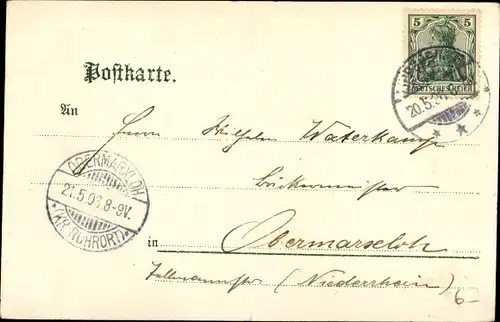 5
DEUTSCHES REICH
20.5.
Postkarte.
An
Herrn Wilhelm Waterkamp
OBERMARXLOH
21.5.03.8-9V.
*(KR. RUHRORT)*
Bäckermeister
in Obermarxloh
(Niederrhein)
6-